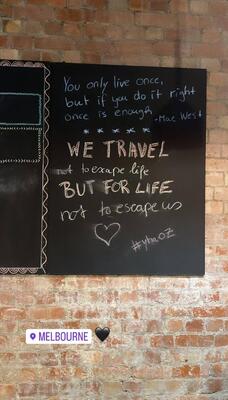 You only live once,
but if you do it right
once is enough
-Mae West
WE TRAVEL
not to exape life
BUT FOR LIFE
not to escape us
#yhaOZ
MELBOURNE